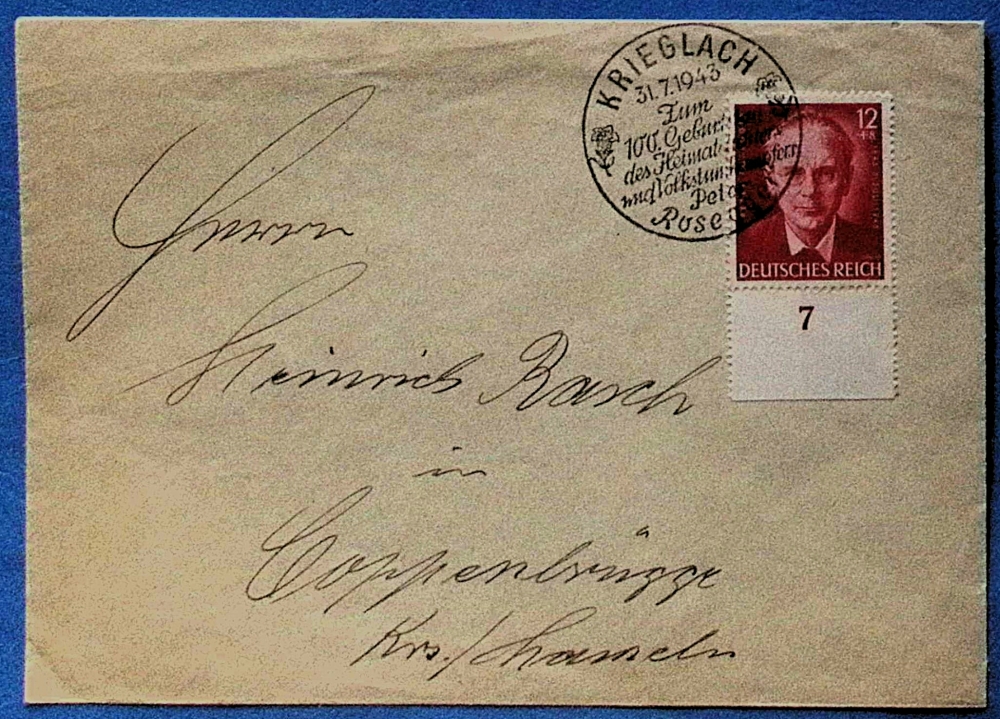 KRIEGLACH
31.7.1943
Zum
100. Geburts
des Heimat
und Volkstum
Peter
Rose
12
DEUTSCHES REICH
7
Herrn
Heinrich Rasch
in
Coppenbrügge
Krs./Hameln